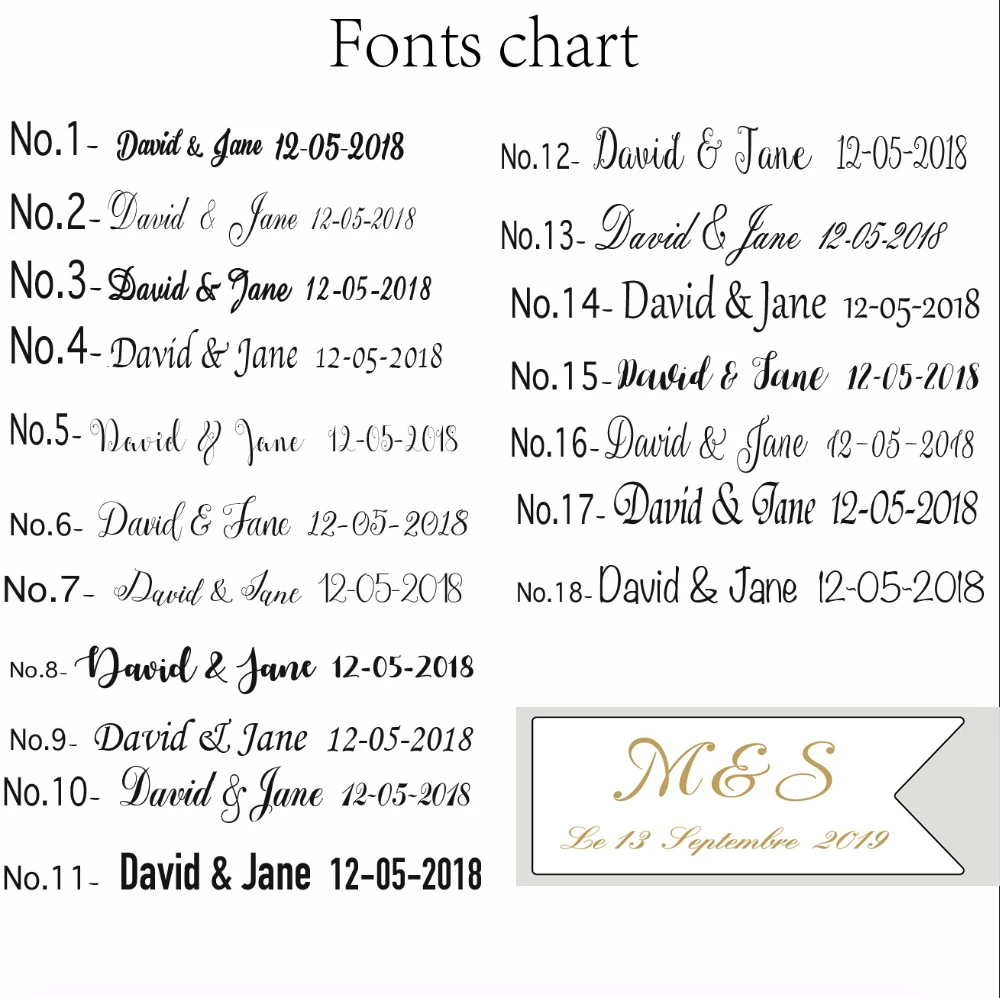 Fonts chart
No.1- David & Jane 12-05-2018
No.2- David & Jane 12-05-2018
No.3- David & Jane 12-05-2018
No.4- David & Jane 12-05-2018
No.5- David & Jane 12-05-2018
No.6- David & Jane 12-05-2018
No.7- David & Jane 12-05-2018
No.8- David & Jane 12-05-2018
No.9- David & Jane 12-05-2018
No.10- David & Jane 12-05-2018
No.11- David & Jane 12-05-2018
No.12- David & Jane 12-05-2018
No.13- David & Jane 12-05-2018
No.14- David & Jane 12-05-2018
No.15- David & Jane 12-05-2018
No.16- David & Jane 12-05-2018
No.17- David & Jane 12-05-2018
No.18- David & Jane 12-05-2018
M & S
Le 13 Septembre 2019